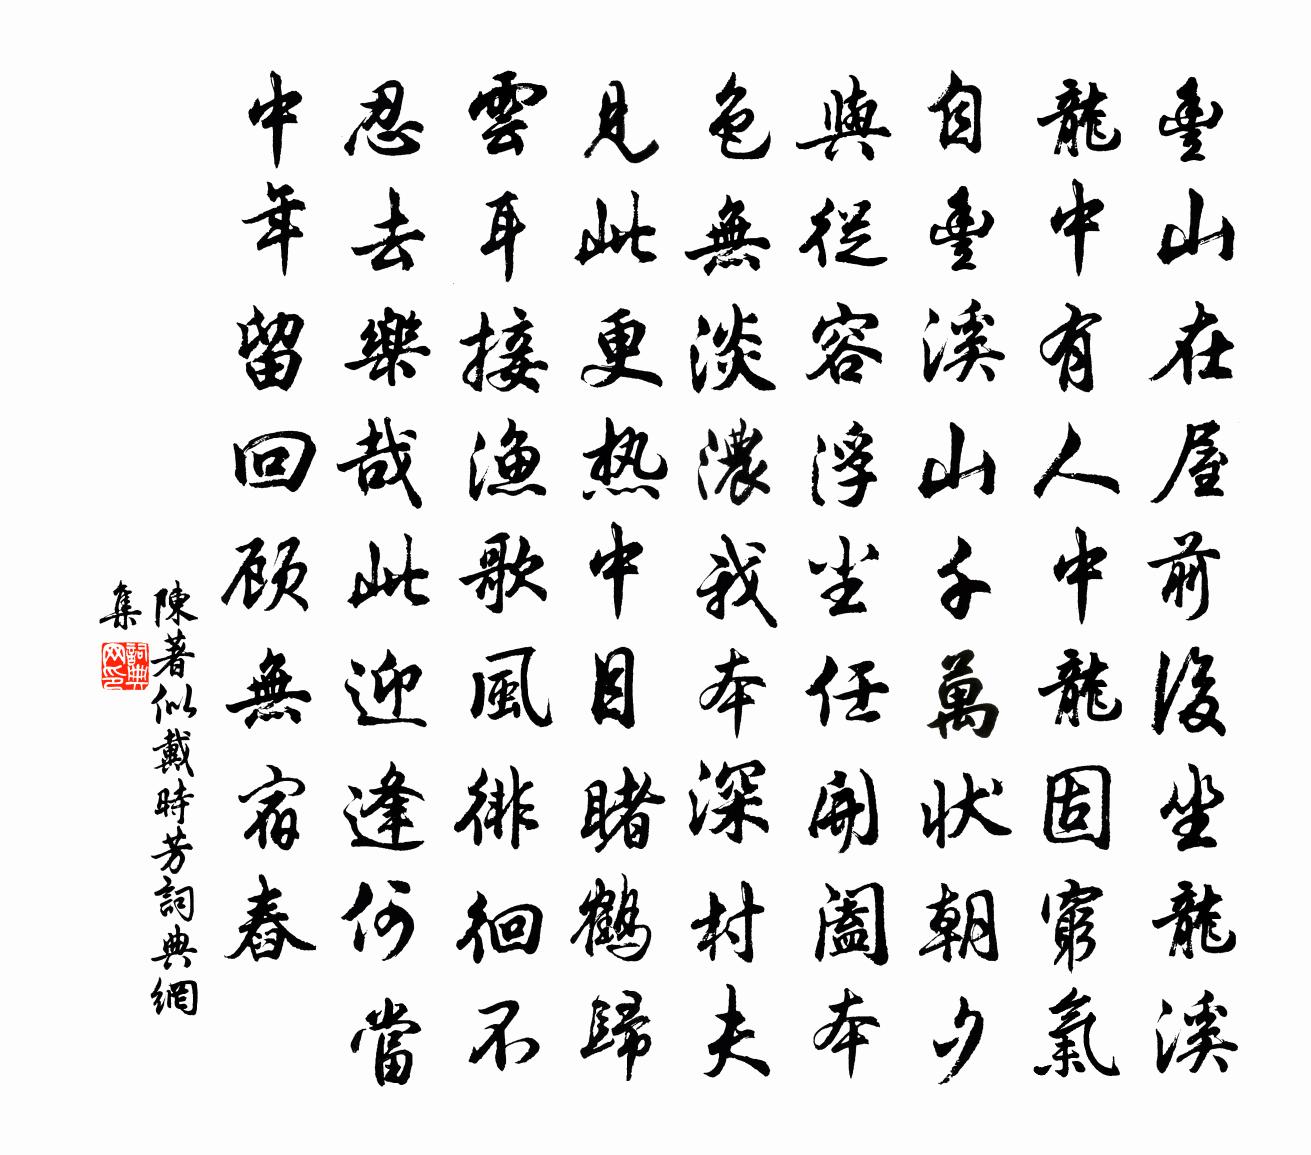 豐山在屋前後坐龍溪
龍中有人中龍固窮氣
自豐溪山千萬狀朝夕
與從容浮坐任開闔本
色無淡濃我本深村夫
見此更热中目睹鶴歸
雲耳接漁歌風徘徊不
忍去樂哉此迎逢何當
中年留回顾無宿舂
陳著似戴時芳詞典網
集
詞典网印